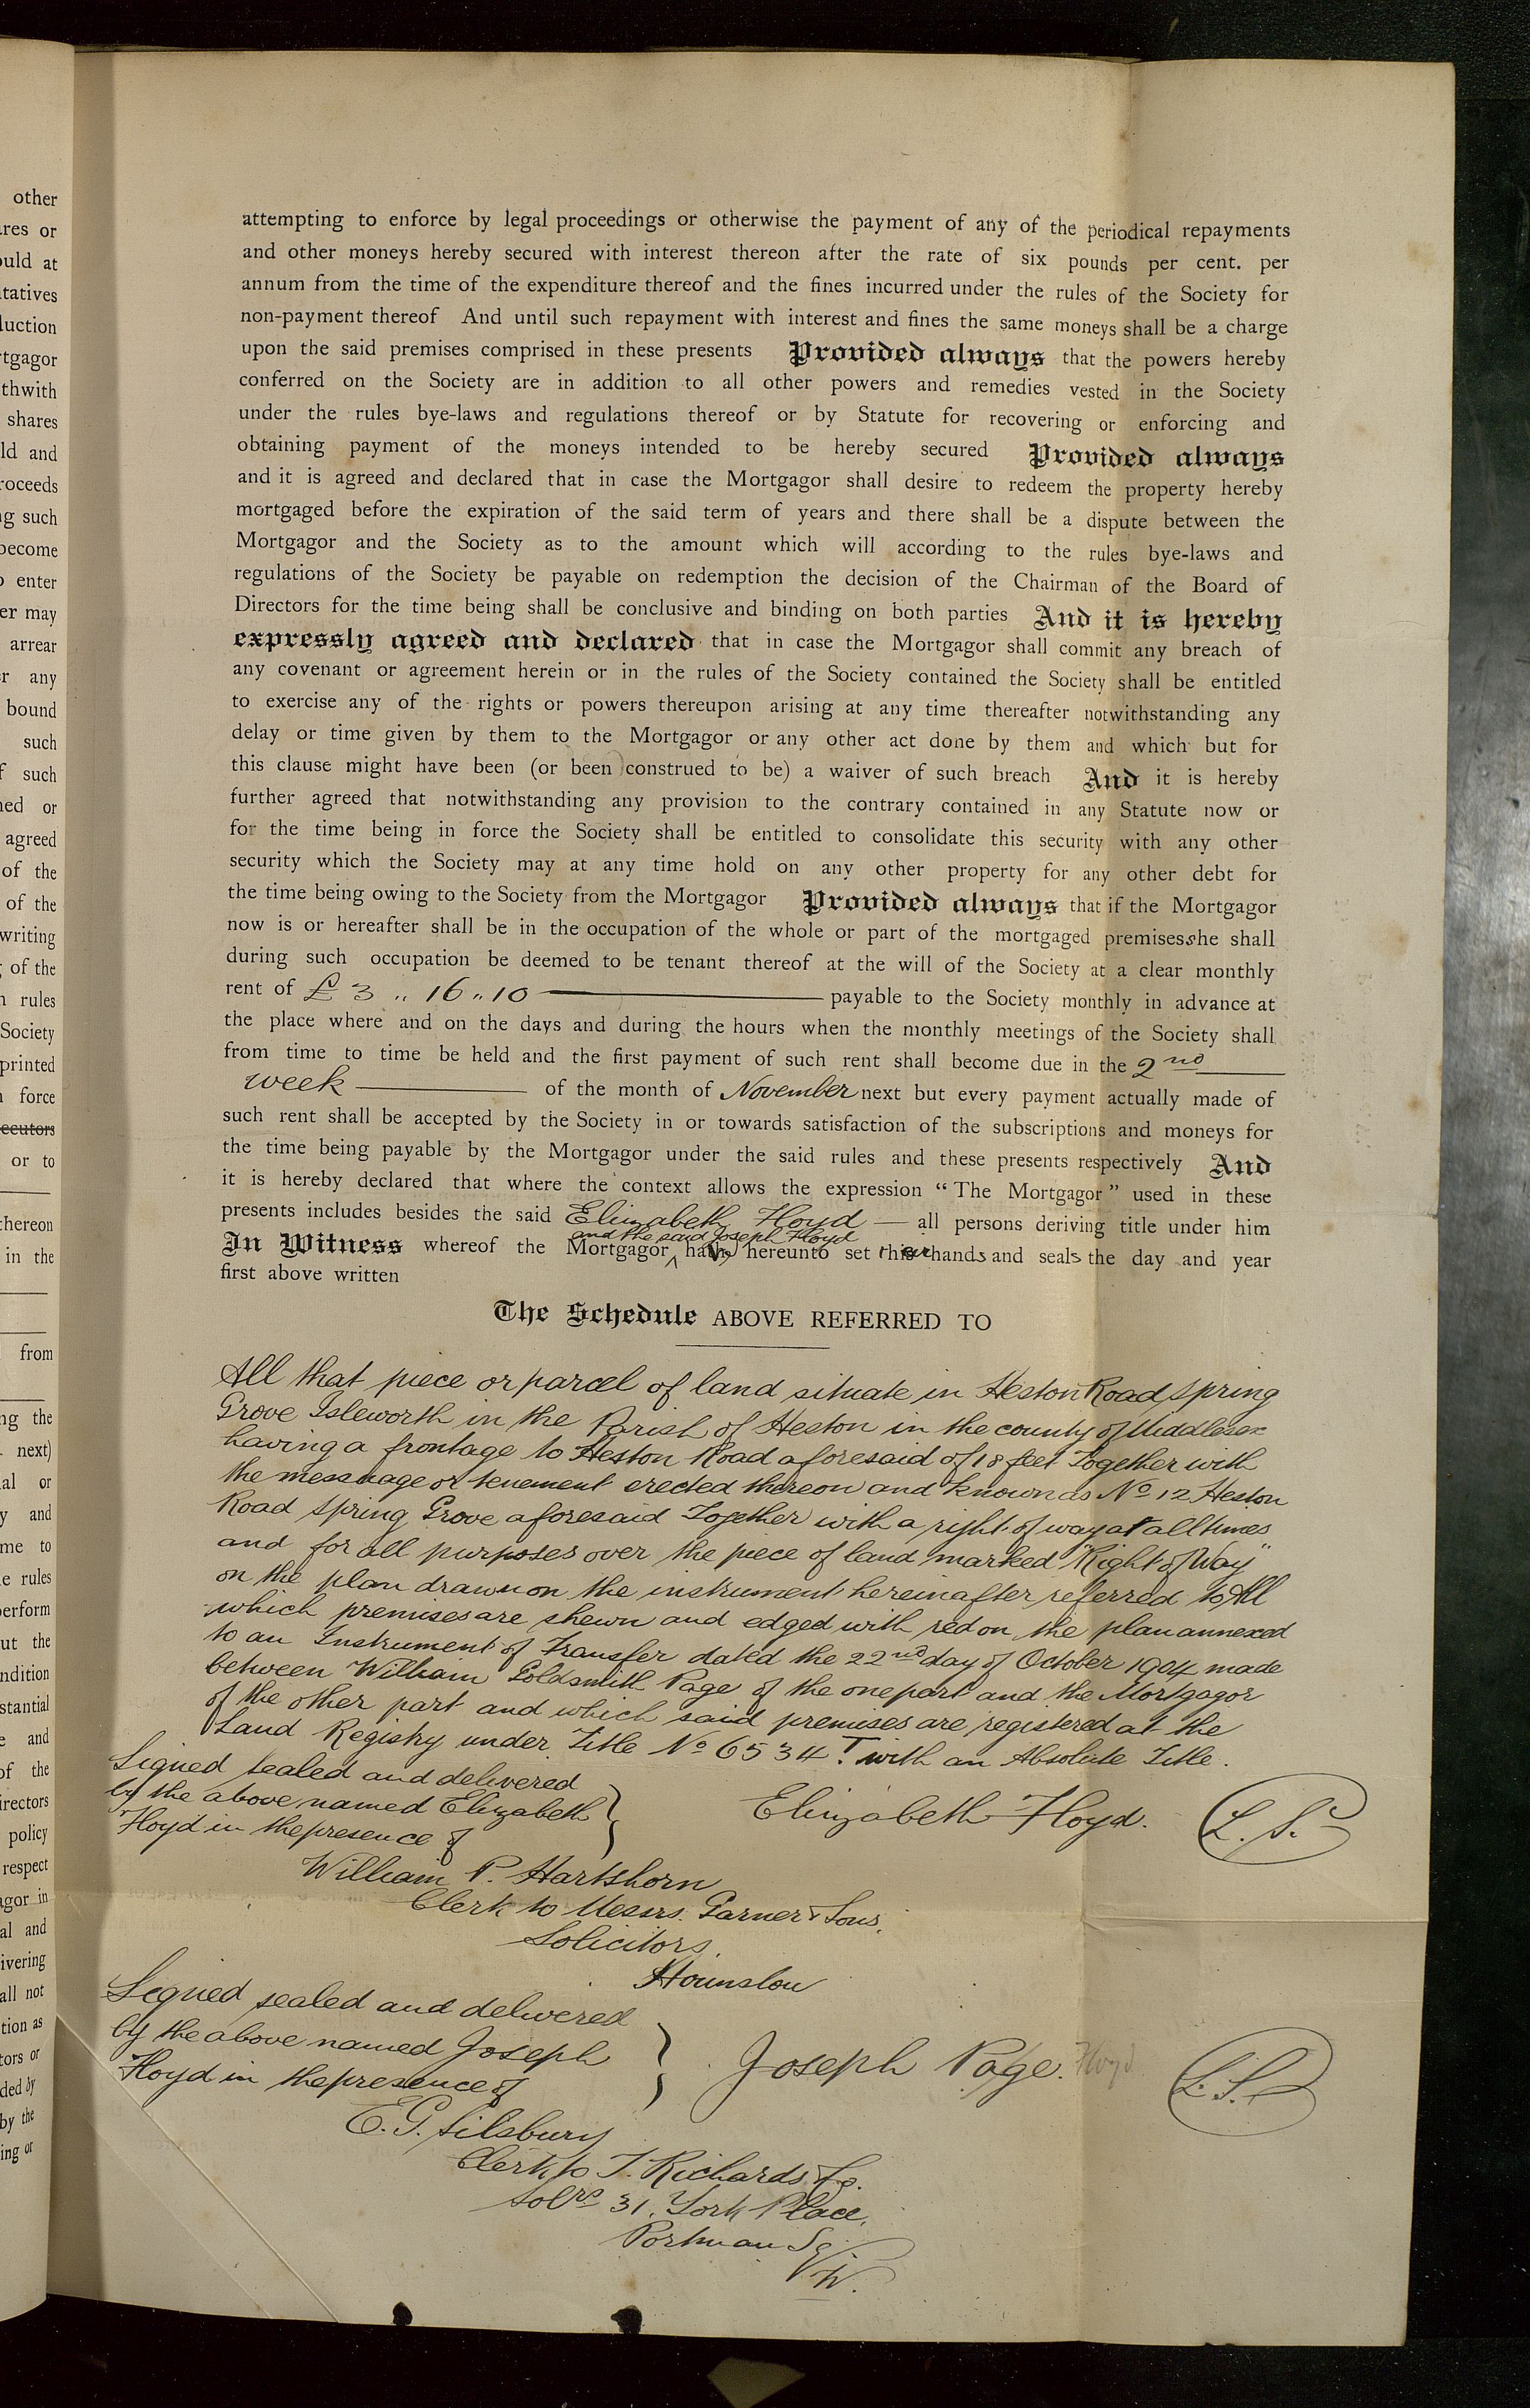 other
ures or
ould at
tatives
duction
rtgagor
thwith
shares
ld and
roceeds
ng such
become
o enter
er may
arrear
r any
bound
such
f such
ned or
agreed
of the
of the
writing
of the
n rules
Society
printed
n force
ecutors
or to
thereon
in the
from
ng the
next)
al or
y and
me to
e rules
perform
ut the
ndition
stantial
e and
of the
irectors
policy
respect
agor in
al and
ivering
all not
tion as
tors or
ded by
by the
ing or
attempting to enforce by legal proceedings or otherwise the payment of any of the periodical repayments
and other moneys hereby secured with interest thereon after the rate of six pounds per cent. per
annum from the time of the expenditure thereof and the fines incurred under the rules of the Society for
non-payment thereof And until such repayment with interest and fines the same moneys shall be a charge
upon the said premises comprised in these presents Provided always that the powers hereby
conferred on the Society are in addition to all other powers and remedies vested in the Society
under the rules bye-laws and regulations thereof or by Statute for recovering or enforcing and
obtaining payment of the moneys intended to be hereby secured Provided always
and it is agreed and declared that in case the Mortgagor shall desire to redeem the property hereby
mortgaged before the expiration of the said term of years and there shall be a dispute between the
Mortgagor and the Society as to the amount which will according to the rules bye-laws and
regulations of the Society be payable on redemption the decision of the Chairman of the Board of
Directors for the time being shall be conclusive and binding on both parties And it is hereby
expressly agreed and declared that in case the Mortgagor shall commit any breach of
any covenant or agreement herein or in the rules of the Society contained the Society shall be entitled
to exercise any of the rights or powers thereupon arising at any time thereafter notwithstanding any
delay or time given by them to the Mortgagor or any other act done by them and which but for
this clause might have been (or been construed to be) a waiver of such breach And it is hereby
further agreed that notwithstanding any provision to the contrary contained in any Statute now or
for the time being in force the Society shall be entitled to consolidate this security with any other
security which the Society may at any time hold on any other property for any other debt for
the time being owing to the Society from the Mortgagor Provided always that if the Mortgagor
now is or hereafter shall be in the occupation of the whole or part of the mortgaged premises she shall
during such occupation be deemed to be tenant thereof at the will of the Society at a clear monthly
rent of £3 „ 16 „ 10 payable to the Society monthly in advance at
the place where and on the days and during the hours when the monthly meetings of the Society shall
from time to time be held and the first payment of such rent shall become due in the 2nd
week of the month of November next but every payment actually made of
such rent shall be accepted by the Society in or towards satisfaction of the subscriptions and moneys for
the time being payable by the Mortgagor under the said rules and these presents respectively And
it is hereby declared that where the context allows the expression "The Mortgagor" used in these
presents includes besides the said Elizabeth Floyd all persons deriving title under him
and the said Joseph Floyd
In Witness whereof the Mortgagor have hereunto set their hands and seals the day and year
first above written
The Schedule ABOVE REFERRED TO
All that piece or parcel of land situate in Heston Road Spring
Grove Isleworth in the Parish of Heston in the county of Middlesex
having a frontage to Heston Road aforesaid of 18 feet Together with
the messuage or tenement erected thereon and known as No 12 Heston
Road Spring Grove aforesaid Together with a right of way at all times
and for all purposes over the piece of land marked "Right of Way"
on the plan drawn on the instrument hereinafter referred to All
which premises are shewn and edged with red on the plan annexed
to an Instrument of Transfer dated the 22nd day of October 1904 made
between William Goldsmith Page of the one part and the Mortgagor
of the other part and which said premises are registered at the
Land Registry under Title No 6534 T. with an Absolute Title.
Signed sealed and delivered
by the above named Elizabeth
Floyd in the presence of
Elizabeth Floyd. L.S.
William P. Hartshorn
Clerk to Messrs. Garner & Sons.
Solicitors.
Hounslow
Signed sealed and delivered
by the above named Joseph
Floyd in the presence of
Joseph Page. Floyd L.S.
E. G. Silsbury
Clerk to T. Richards & Co.
Solrs 31, York Place,
Portman Sq
W.